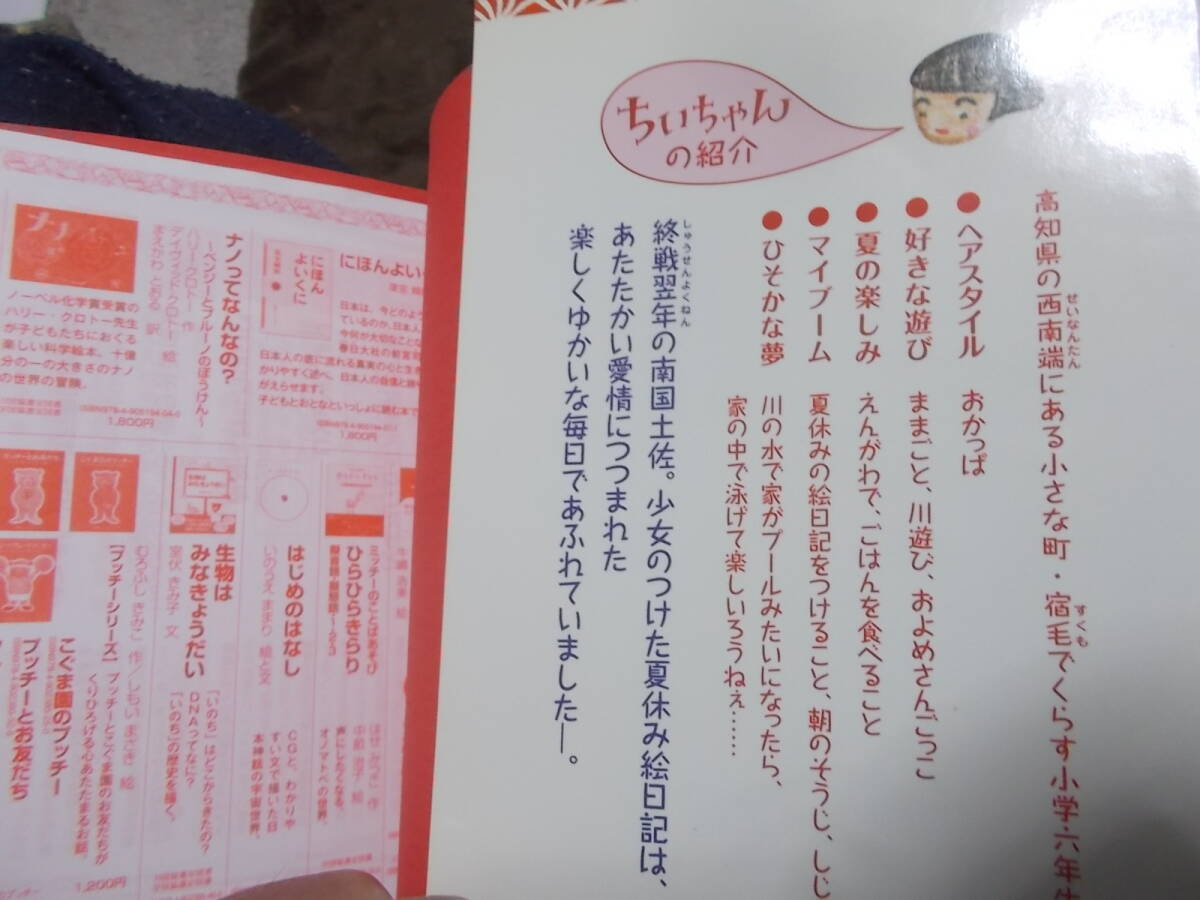 ちいちゃん
の紹介
高知県の西南端にある小さな町・宿毛でくらす小学六年生
せいなんたん
すくも
●ヘアスタイル おかっぱ
●好きな遊び ままごと、川遊び、およめさんごっこ
●夏の楽しみ えんがわで、ごはんを食べること
●マイブーム 夏休みの絵日記をつけること、朝のそうじ、しじ
●ひそかな夢 川の水で家がプールみたいになったら、
家の中で泳げて楽しいろうねぇ……
終戦翌年の南国土佐。少女のつけた夏休み絵日記は、
しゅうせんよくねん
あたたかい愛情につつまれた
楽しくゆかいな毎日であふれていました―。
にほんよいく
にほん
よいくに
日本は、今どのよう
ているのか、日本人
今何が大切なことな
春日大社の前宮司
日本人の底に流れる真実の心と生き
かりやすく述べ、日本人の自信と誇り
がえらせます。
子どもとおとなといっしょに読む本で
1,800円
ナノってなんなの?
〜ベンジーとブルーノのぼうけん〜
ハリー・クロトー 作
デイヴィッド・クロトー 絵
まえかわ とおる 訳
ナノ
ノーベル化学賞受賞の
ハリー・クロトー先生
が子どもたちにおくる
楽しい科学絵本。十億
分の一の大きさのナノ
の世界の冒険。
ISBN978-4-905194-04-0
1,800円
ミッチーのことばあそび
ひらひらきらり
擬音語・擬態語1・2・3
はせ みつこ 作
中畝 治子 絵
声にしたくなる、
オノマトペの世界。
はじめのはなし
いのうえ ままり 絵と文
CGと、わかりや
すい文で描いた日
本神話の宇宙世界。
生物は
みなきょうだい
室伏 きみ子 文
「いのち」はどこからきたの?
DNAってなに?
「いのち」の歴史を描く。
むろふし きみこ 作/しもい まさき 絵
【プッチーシリーズ】 プッチーとこぐま園のお友だちが
くりひろげる心あたたまるお話。
こぐま園のプッチー
プッチーとお友だち
1,200円